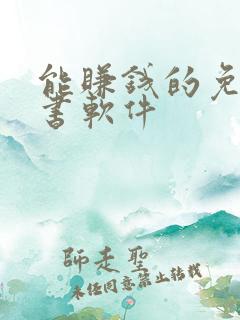 能賺錢的免
書軟件
師走聖
未經同意禁止转载